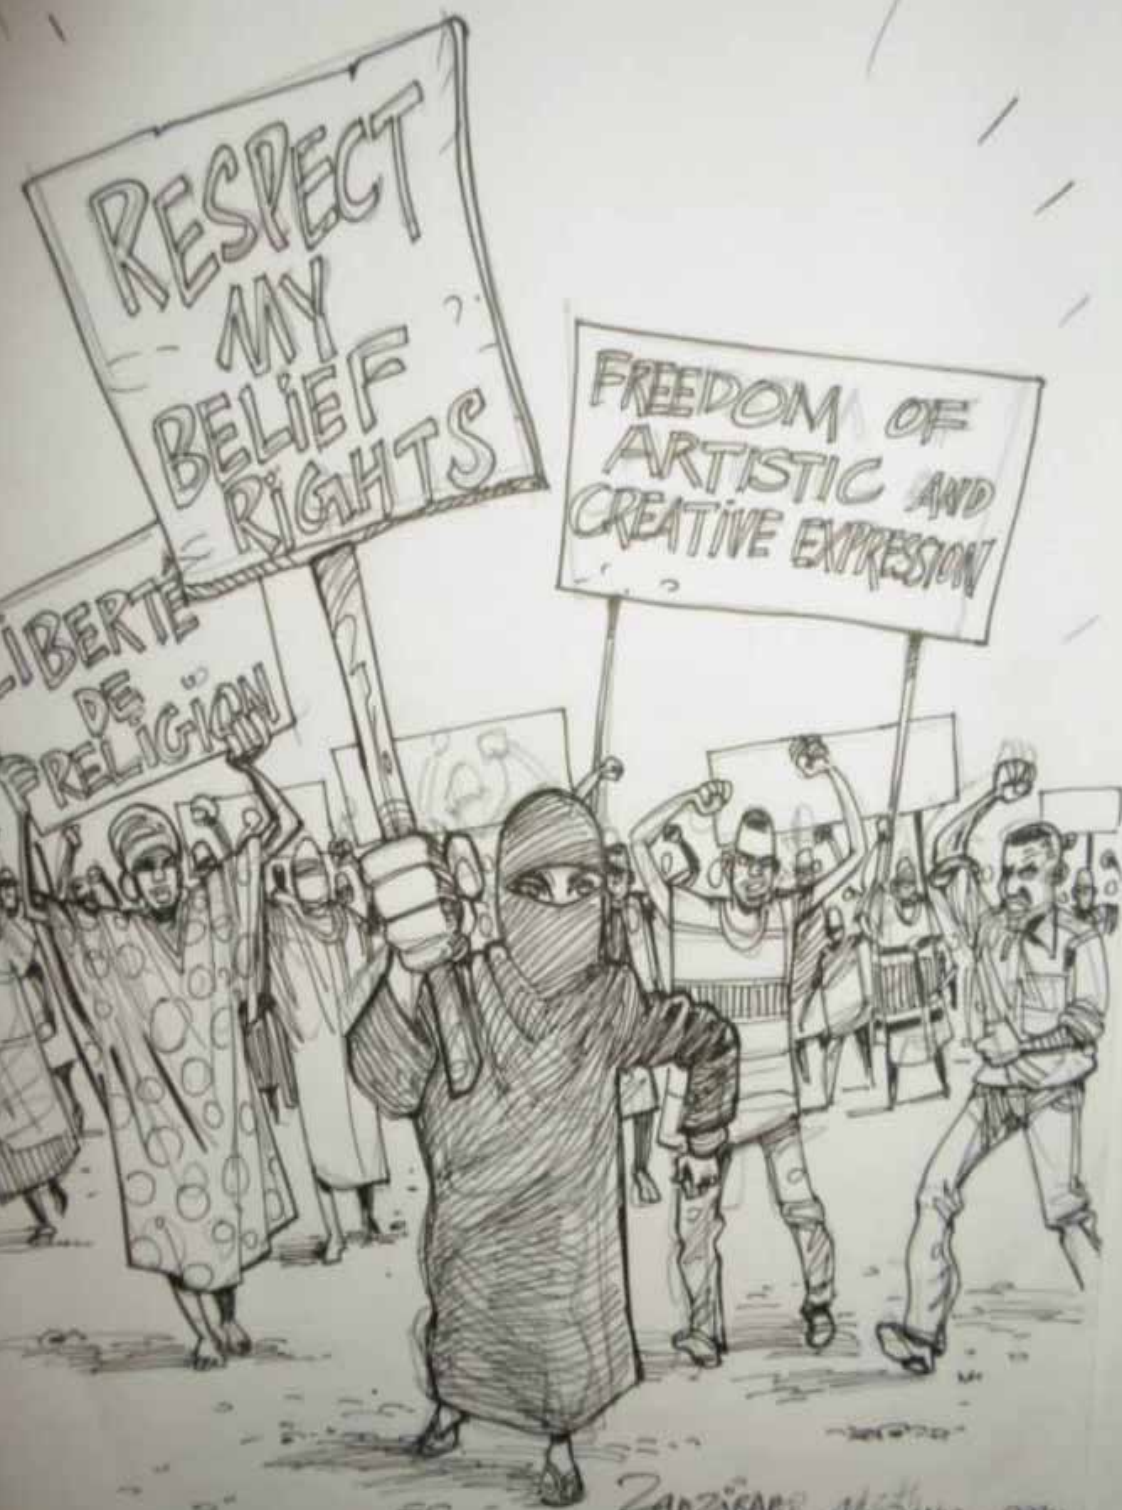 RESPECT
MY
BELIEF
RIGHTS
FREEDOM OF
ARTISTIC AND
CREATIVE EXPRESSION
LIBERTÉ
DE
RELIGION